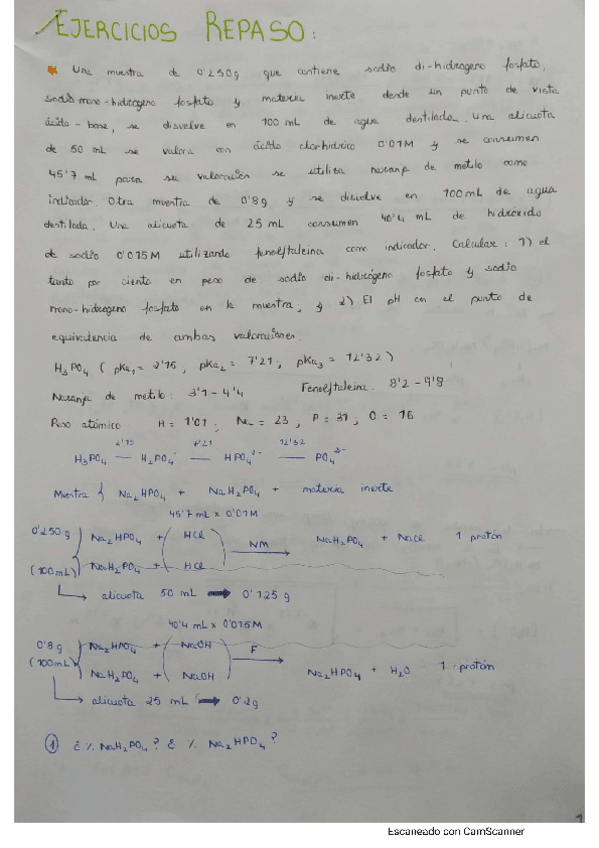 EJERCICIOS REPASO:
Una muestra de 0'250g que contiene sodio di-hidrogeno fosfato,
sodio mono-hidrogeno fosfato y materia inerte desde un punto de vista
ácido-base, se disuelve en 100 mL de agua destilada. Una alicuota
de 50 mL se valora con ácido clorhidrico 0'01M y se consumen
45'7 mL para su valoración se utiliza naranja de metilo como
indicador. Otra muestra de 0'8g y se disuelve en 100mL de agua
destilada. Una alicuota de 25 mL consumen 40'4 mL de hidróxido
de sodio 0'015M utilizando fenolftaleina como indicador. Calcular: 1) el
tanto por ciento en peso de sodio di-hidrógeno fosfato y sodio
mono-hidrogeno fosfato en la muestra; y 2) El pH en el punto de
equivalencia de ambas valoraciones.
H₃PO₄ (pKa₁ = 2'15, pKa₂ = 7'21; pKa₃ = 12'32)
Naranja de metilo: 3'1 - 4'4 Fenolftaleina: 8'2 - 9'8
Peso atómico H = 1'01; Na = 23; P = 31; O = 16
2'15 7'21 12'32
H₃PO₄ — H₂PO₄⁻ — HPO₄²⁻ — PO₄³⁻
Muestra { Na₂HPO₄ + NaH₂PO₄ + materia inerte
45'7 mL x 0'01M
0'250 g Na₂HPO₄ + HCl NM → NaH₂PO₄ + NaCl 1 protón
(100mL) NaH₂PO₄ + HCl
alicuota 50 mL → 0'125 g
40'4 mL x 0'015M
0'8g Na₂HPO₄ + NaOH F →
(100mL) NaH₂PO₄ + NaOH Na₂HPO₄ + H₂O 1 protón
alicuota 25 mL → 0'2g
① ¿% NaH₂PO₄? ¿% Na₂HPO₄?
1
Escaneado con CamScanner